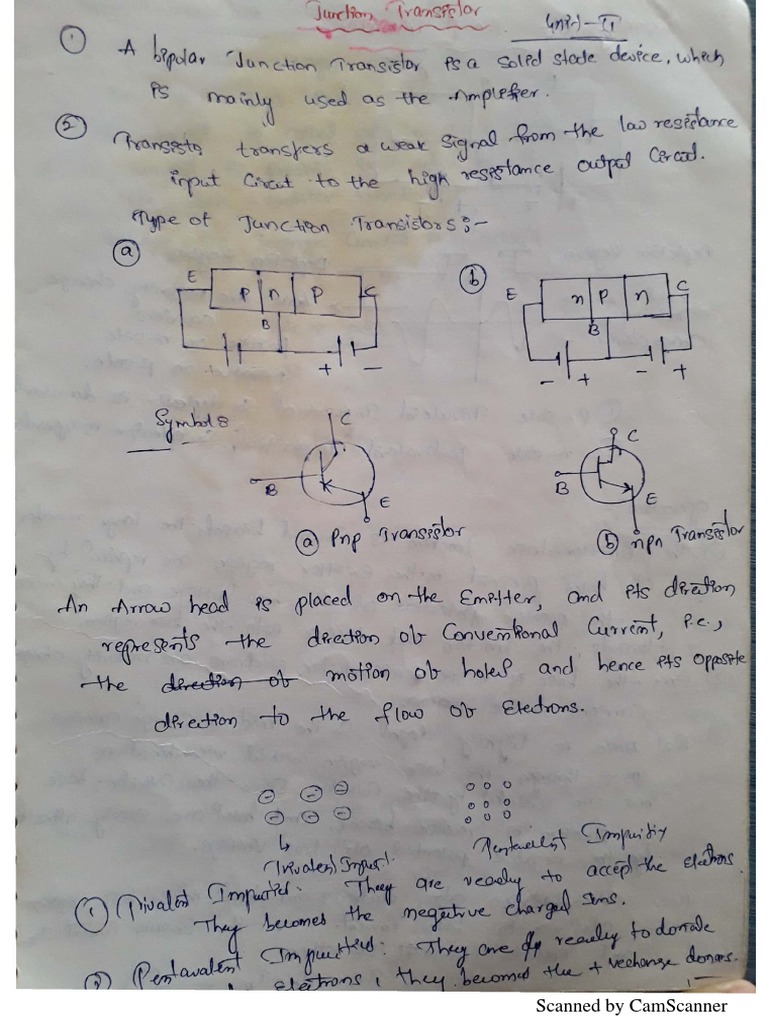 Junction Transistor
Unit-II
① A bipolar Junction Transistor is a solid state device, which
is mainly used as the Amplefier.
② Transisto, transfers a weak signal from the low resistance
input Circut to the high resistance output Circuit.
Type of Junction Transistors:-
ⓐ
E P n P C
B
+ + -
ⓑ
E n P n C
B
- + - +
Symbols
C
B
E
ⓐ Pnp Transistor
C
B
E
ⓑ npn Transistor
An Arrow head is placed on the Emitter, and its direction
represents the direction of Conventional Current, i.e.,
the direction of motion of holes and hence its opposite
direction to the flow of Electrons.
Trivalent Impuri:
Pentavalent Impurity
① Trivalent Impurities: They are ready to accept the electrons.
They becomes the negative charged Ions.
② Pentavalent Impurities: They are ready to donate
electrons, they becomes the +
Scanned by CamScanner